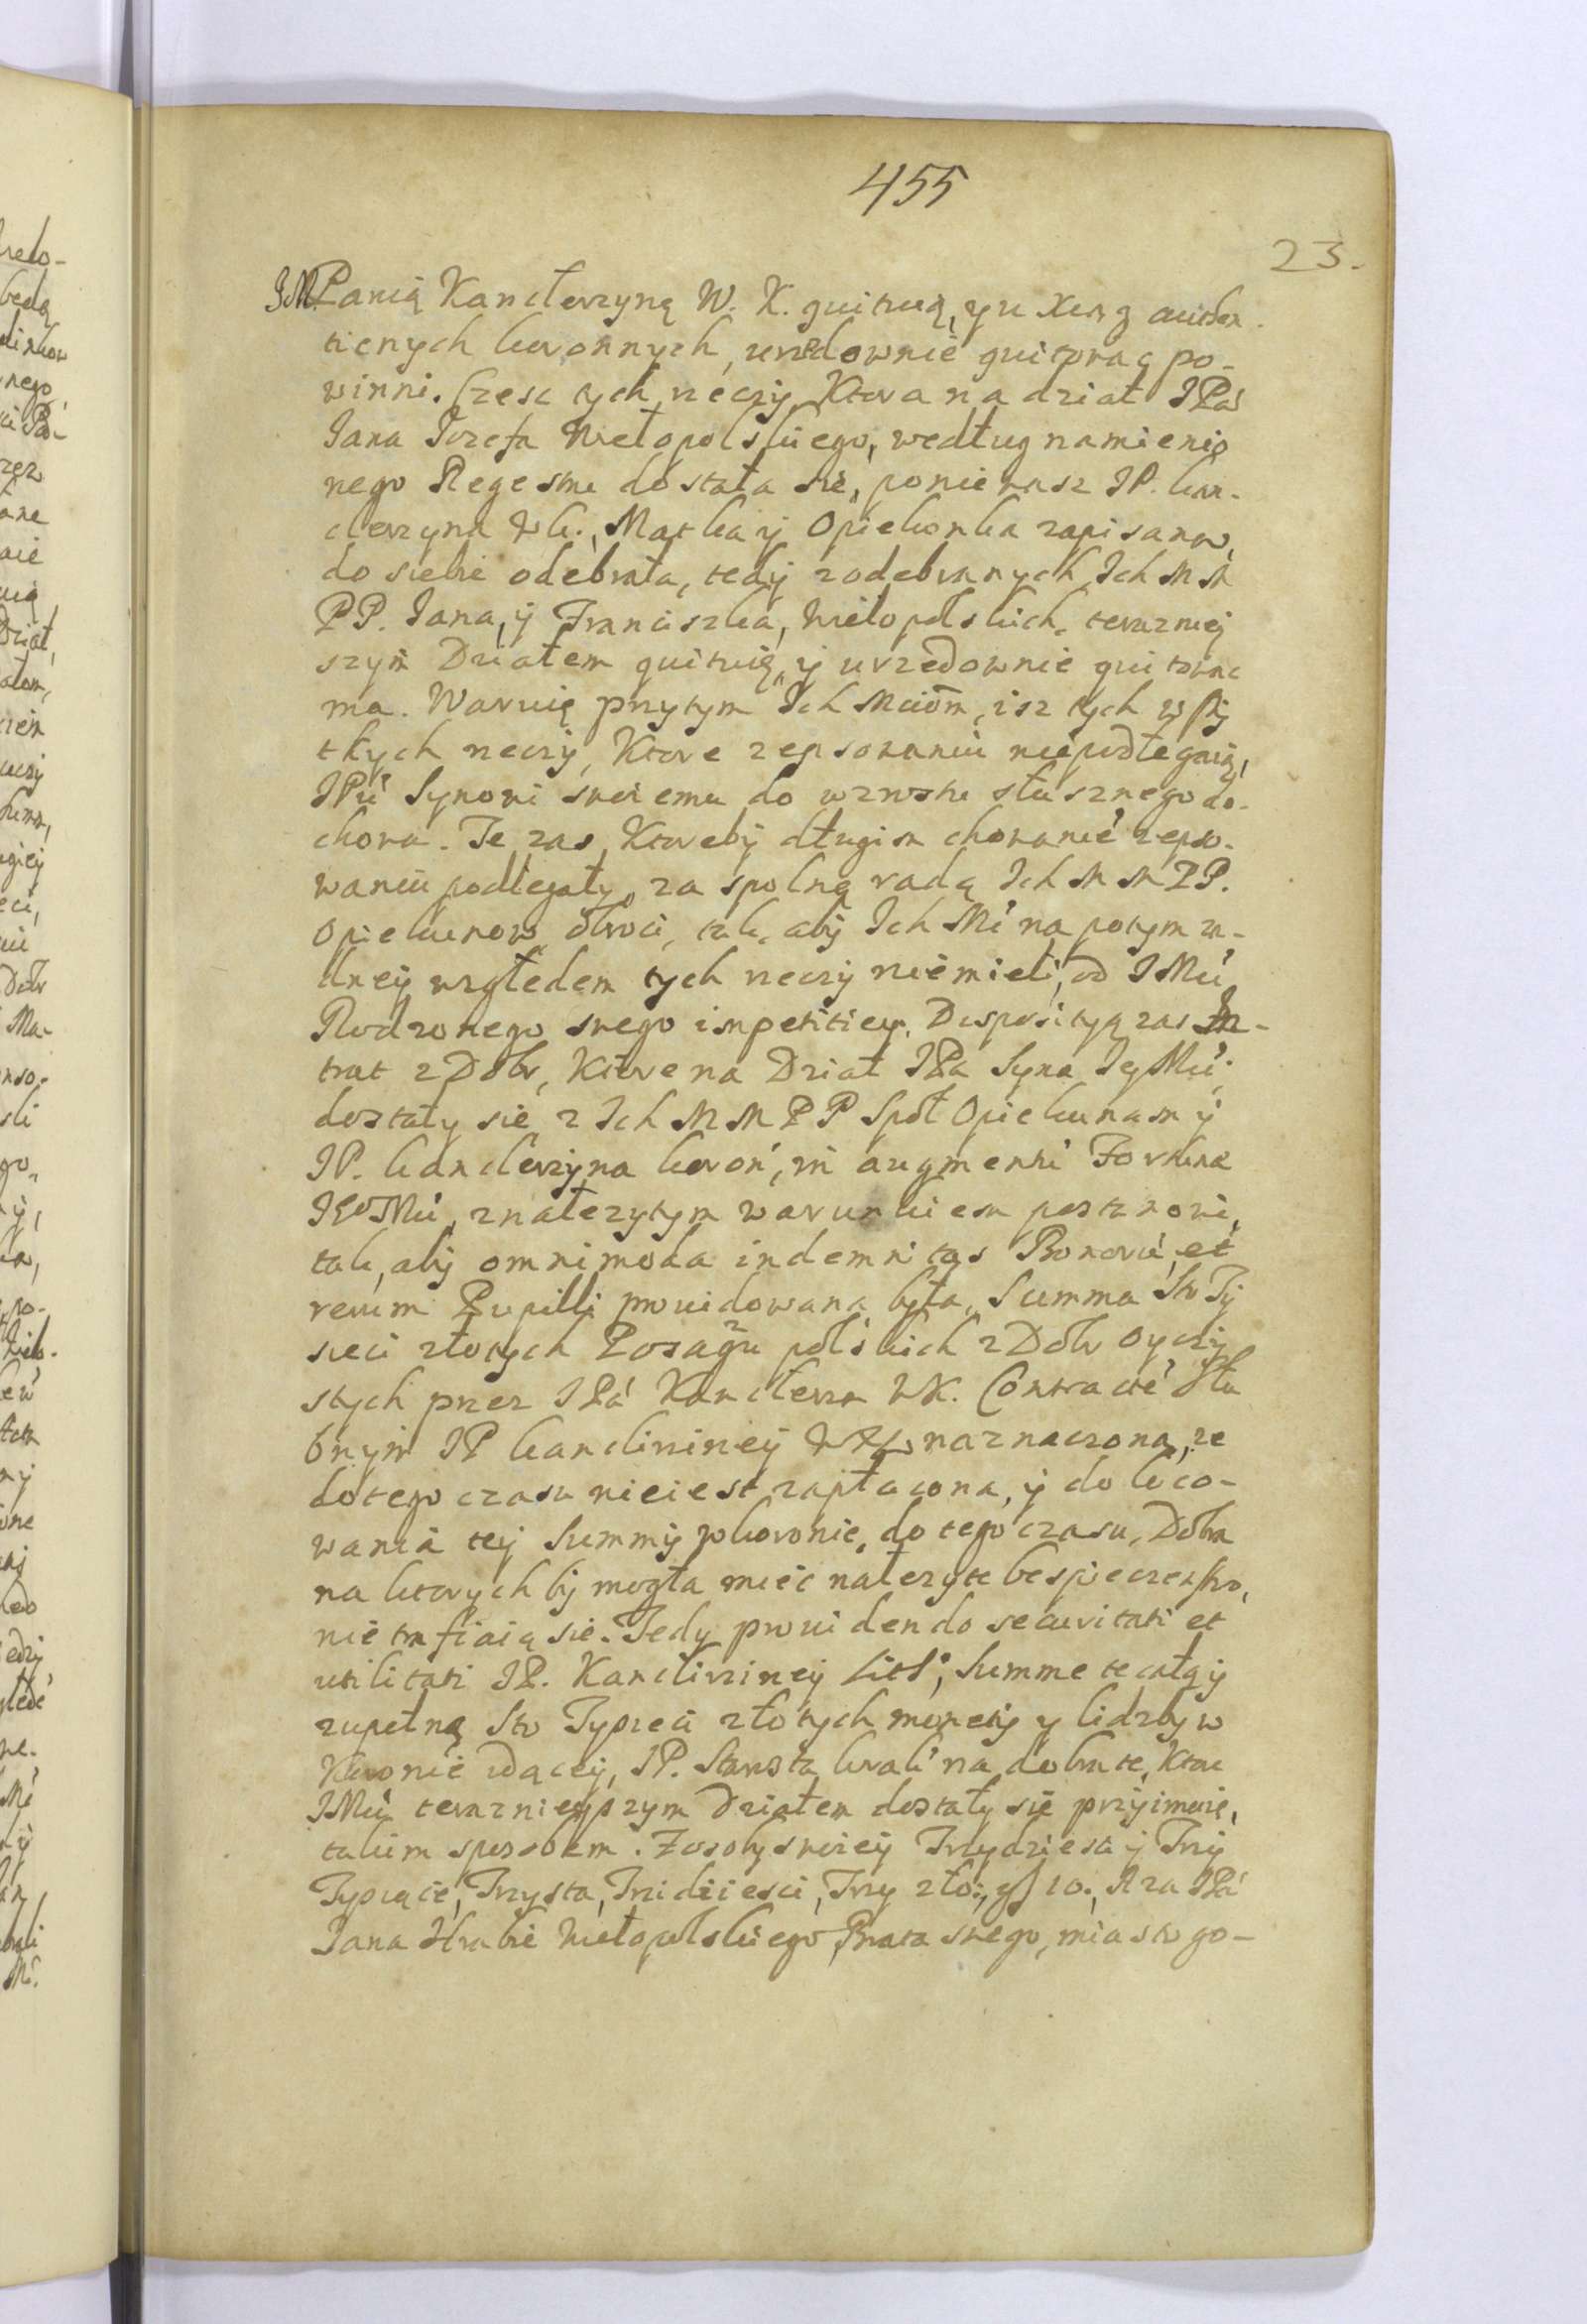 455
23.
JM Panią Kanclerzyną W. K. quituią, y u Xiąg authen
ticnych koronnych, urzędownie quitować po-
winni. Czesc tych rzeczy Ktora na dział JPa
Jana Jozefa Wielopolskiego, według namienio
nego Regestru dostała sie, poniewasz JP. kan-
clerzyna Wk., Matka y Opiekonka zapisanw,
do siebie odebrała, tedy zodebranych Ich M M
PP. Jana, y Franciszka, Wielopolskich, terazniey
szym Działem quituią, y urzędownie quitowac
ma. Waruią przytym Ich Mciom, isz tych wszy
tkych rzeczy, Ktore zepsowaniu niepodlegaią,
JPu Synowi swoiemu do wzrostu słusznego do-
chowa. Te zas, Ktoreby długim chowanie zepso-
waniu podlegały, za spolną radą Ich M M PP.
Opiekunow, obroci, tak, aby Ich Mć na potym za-
dney względem tych rzeczy niemieli, od JMci
Rodzonego swego impetitiey. Dispositią zas In-
trat z Dobr, Ktore na Dział JPa Syna Jey Mci,
dostały sie z Ich M M P P Społ Opiekunam y
JP. kanclerzyna koroń, in augmentū Fortunæ
JEoMci, znależytym warunkiem postanowi,
tak, aby omnimoda indemnitas Bonorū, et
rerum Pupilli prouidowana była, Summa Sto Ty
sieci złotych Posagu polskich z Dobr oyczy
stych przez JPa Kanclerza WK. Contractē Slu
bnym JP kancliriney WK naznaczona, ze
dotego czasu nieiest zapłacona, y do loco-
wania tey Summy wkoronie, do tego czasu, Dobra
na ktorych by mogła mieć należyte bespieczenstwo,
nie trafiaią sie. Tedy prouidendo securitati et
utilitati JP. Kancliriney Litt; Summe te całą y
zupełną Sto Tysieci złotych monety y lidzby w
Koronie idącey, JP. Starosta krak' na dobra te, Ktore
JMci terazniejszym Działem dostały się przyimuie,
takim sposobem. Zosoby swoiey Trzydziesci y Trzy
Tysiące, Trzysta, Tridziesci, Trzy złot, gr 10., A za JPa
Jana Hrabie Wielopolskiego, Brata swego, miasto go-